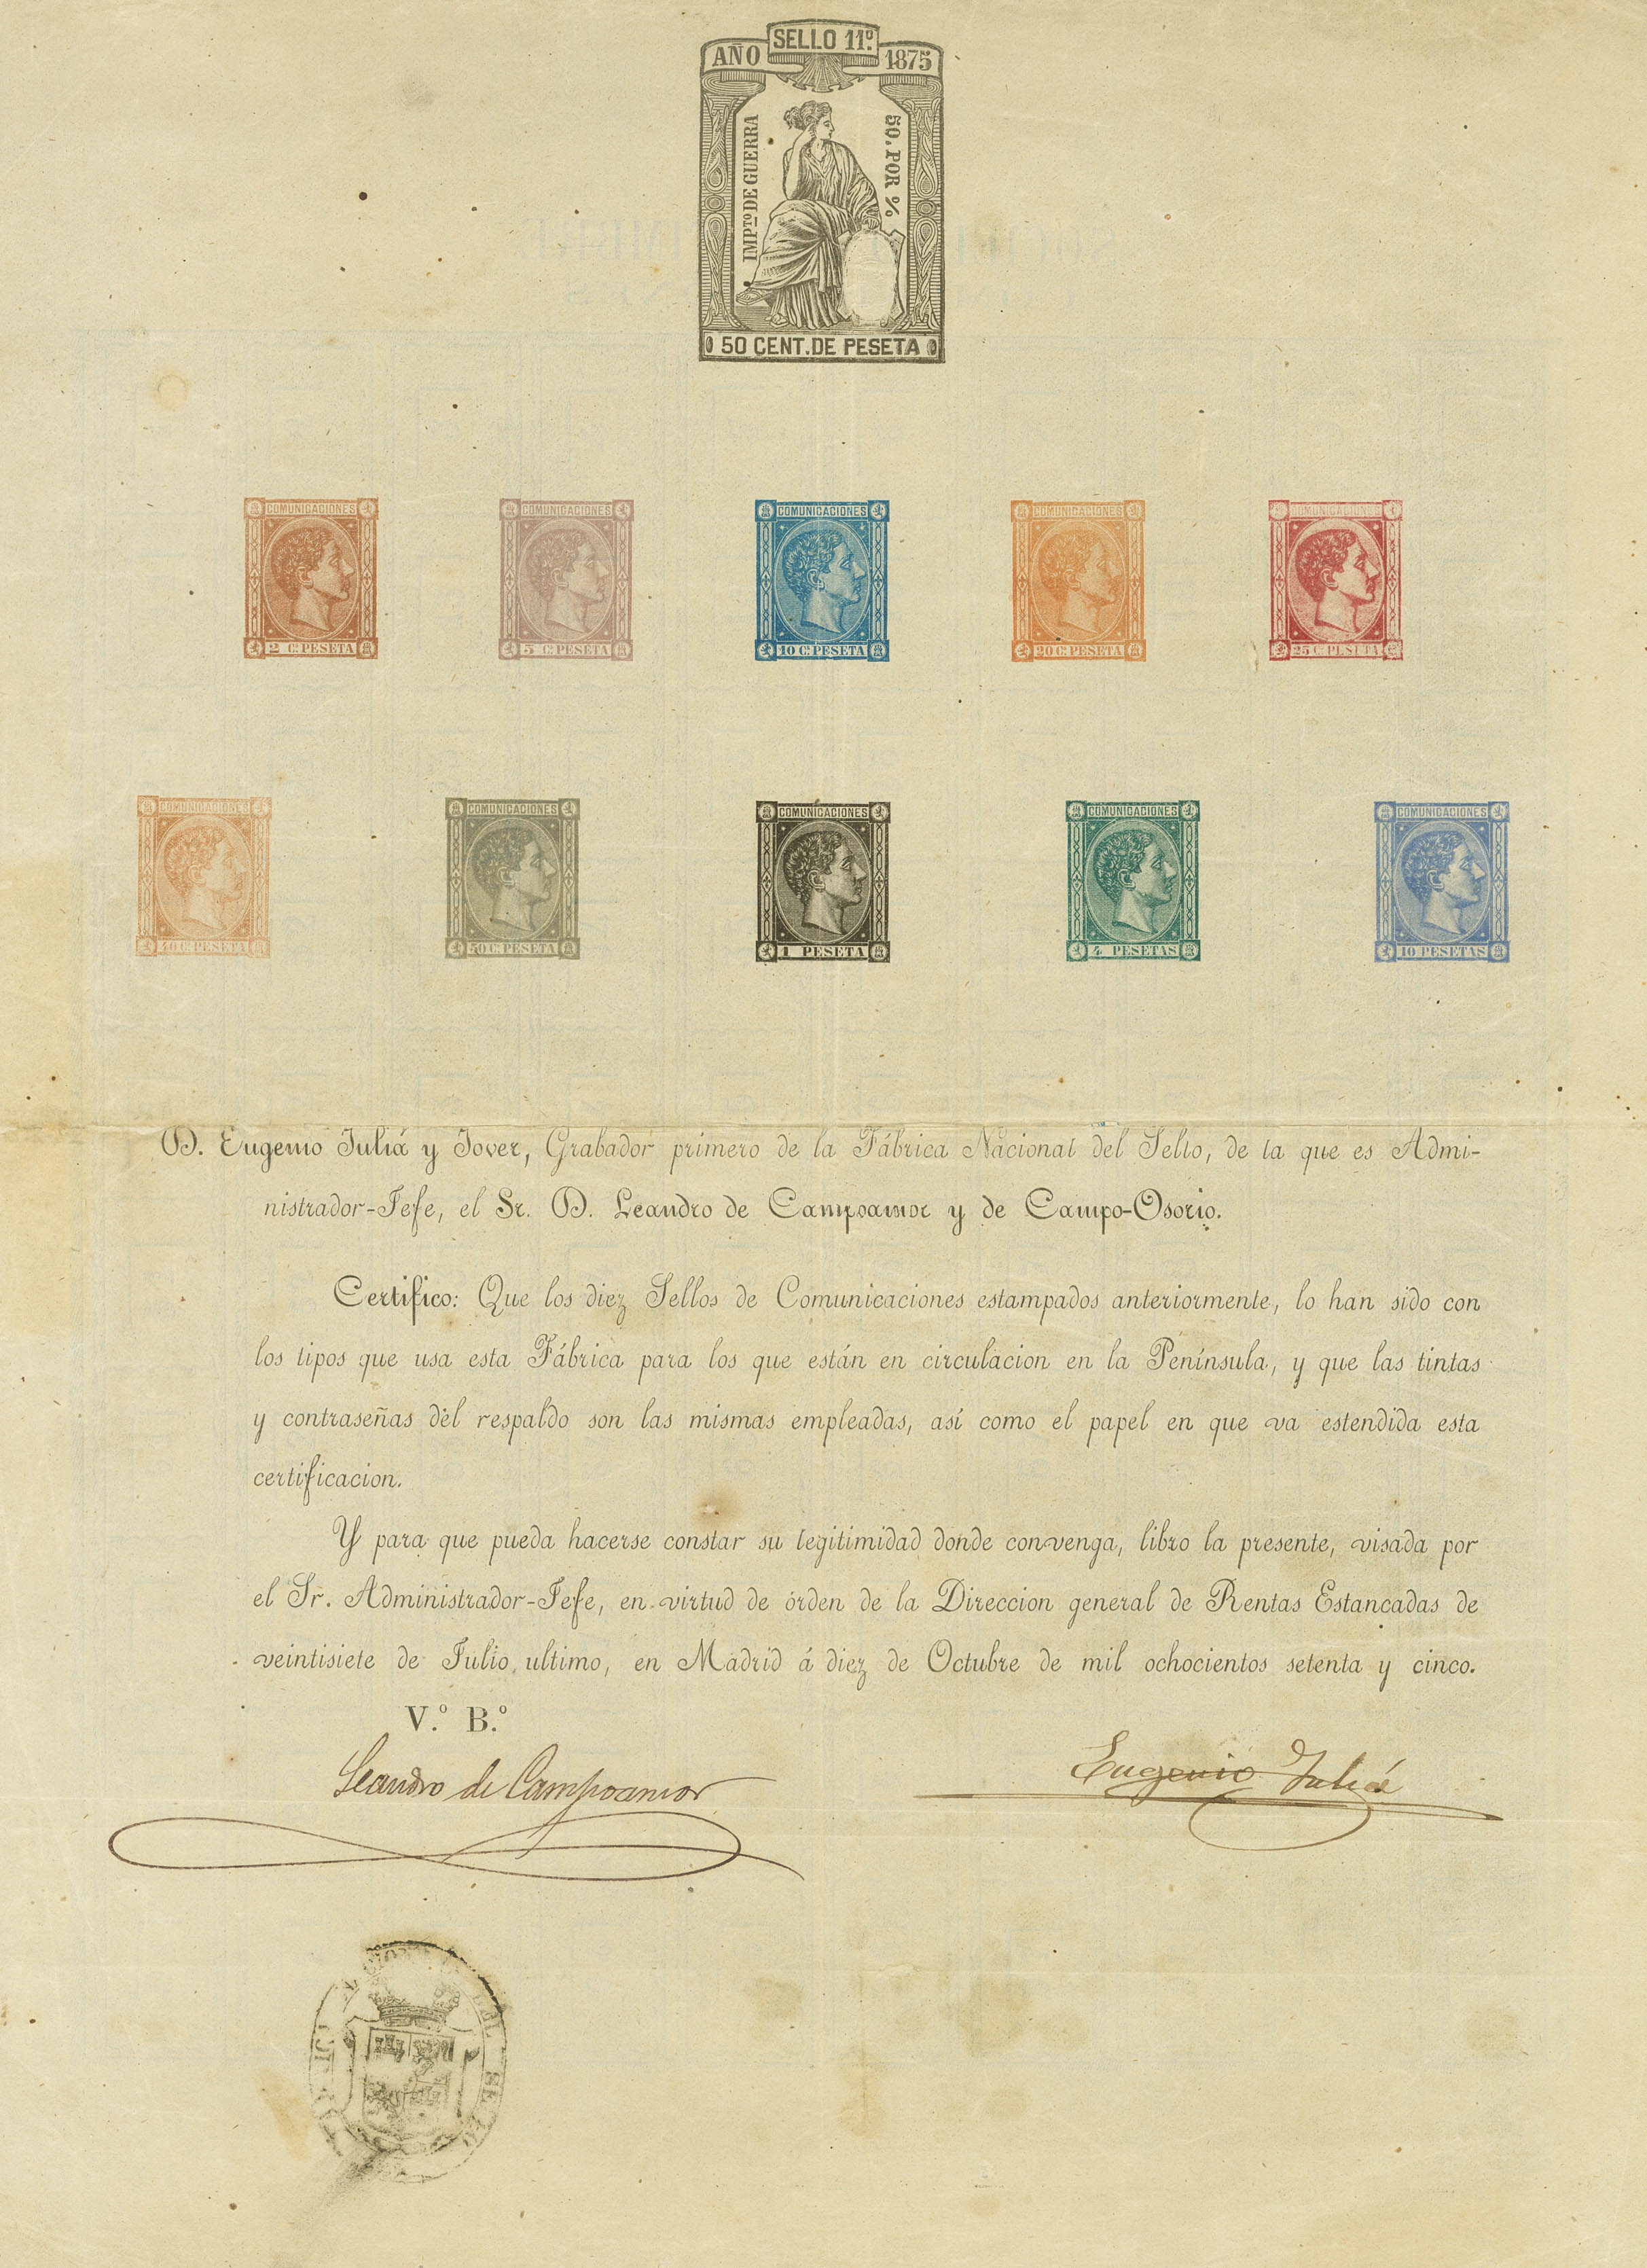 SELLO 11º
AÑO 1875
IMPTO DE GUERRA
50. POR %
50 CENT. DE PESETA
COMUNICACIONES
2 C. PESETA
COMUNICACIONES
5 C. PESETA
COMUNICACIONES
10 C. PESETA
COMUNICACIONES
20 C. PESETA
COMUNICACIONES
25 C. PESETA
COMUNICACIONES
40 C. PESETA
COMUNICACIONES
50 C. PESETA
COMUNICACIONES
1 PESETA
COMUNICACIONES
4 PESETAS
COMUNICACIONES
10 PESETAS
D. Eugenio Juliá y Jover, Grabador primero de la Fábrica Nacional del Sello, de la que es Admi-
nistrador-Jefe, el Sr. D. Leandro de Campoamor y de Campo-Osorio.
Certifico: Que los diez Sellos de Comunicaciones estampados anteriormente, lo han sido con
los tipos que usa esta Fábrica para los que están en circulacion en la Península, y que las tintas
y contraseñas del respaldo son las mismas empleadas, así como el papel en que va estendida esta
certificacion.
Y para que pueda hacerse constar su legitimidad donde convenga, libro la presente, visada por
el Sr. Administrador-Jefe, en virtud de órden de la Direccion general de Rentas Estancadas de
veintisiete de Julio ultimo, en Madrid á diez de Octubre de mil ochocientos setenta y cinco.
V.º B.º
Leandro de Campoamor
Eugenio Juliá